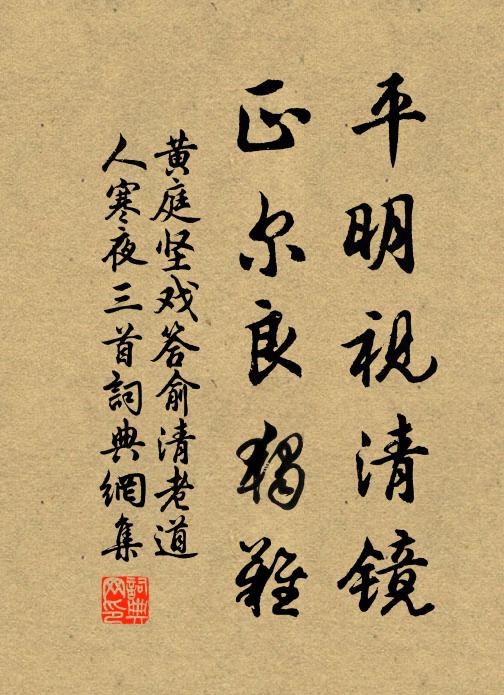 平明视清镜
正尔良独难
黄庭坚戏答俞清老道
人寒夜三首詞典網集
詞典网印